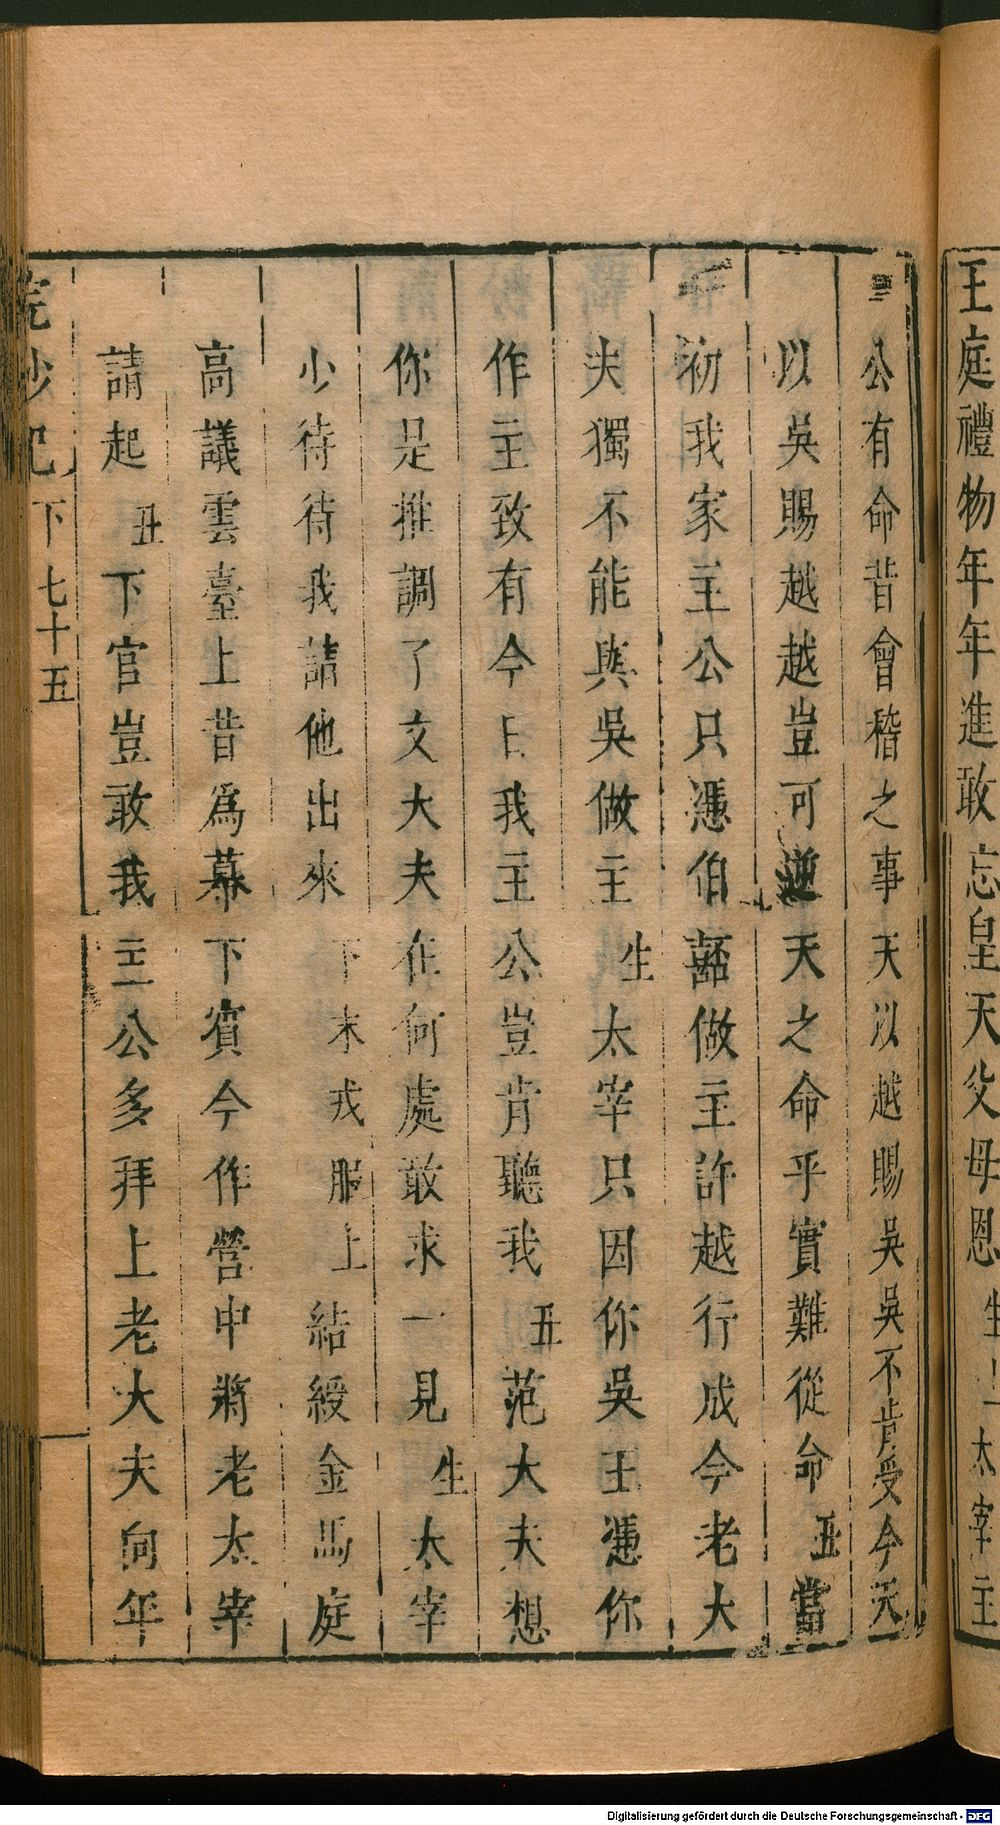 王庭禮物年年進敢忘皇天父母恩生上太宰主
公有命昔會稽之事天以越賜吳吳不肯受今天
以吳賜越越豈可逆天之命乎實難從命丑當
初我家主公只憑伯嚭做主許越行成今老大
夫獨不能與吳做主生太宰只因你吳王憑你
作主致有今日我主公豈肯聽我丑范大夫想
你是推調了文大夫在何處敢求一見生太宰
少待待我請他出來下末戎服上結綬金馬庭
高議雲臺上昔為幕下賓今作營中將老太宰
請起丑下官豈敢我主公多拜上老大夫向年
浣紗記下七十五
Digitalisierung gefördert durch die Deutsche Forschungsgemeinschaft - DFG